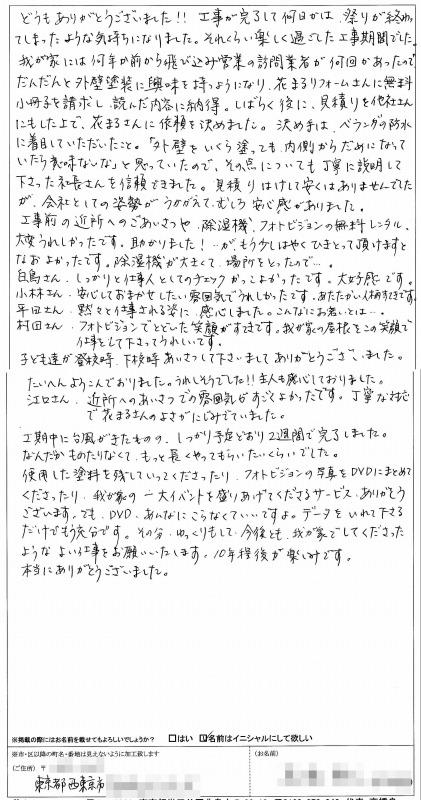 どうもありがとうございました!! 工事が完了して何日かは、祭りが終わっ
てしまったような気持ちになりました。それくらい楽しく過ごした工事期間でした。
我が家には何年か前から飛び込み営業の訪問業者が何回かあったので
だんだんと外壁塗装に興味を持つようになり、花まるリフォームさんに無料
小冊子を請求し、読んだ内容に納得。しばらく後に、見積りを他社さん
にもした上で、花まるさんに依頼を決めました。決め手は、ベランダの防水
に着目していただいたこと。「外壁をいくら塗っても、内側からだめになって
いたら意味ないな」と思っていたので、その点についても丁寧に説明して
下さった社長さんを信頼できました。見積りはけして安くはありませんでした
が、会社としての姿勢がうかがえて、むしろ安心感がありました。
工事前の近所へのごあいさつや、除湿機、フォトビジョンの無料レンタル、
大変うれしかったです。助かりました! …が、もう少しはやくひきとって頂けますと
なおよかったです。除湿機が大きくて、場所をとったので…。
白鳥さん、しっかりと仕事人としてのチェックがかっこよかったです。大好感です。
小林さん、安心しておまかせしたい雰囲気でうれしかったです。あたたかい人柄すてきです。
平田さん、黙々と仕事される姿に、感心しました。こんなにお若いとは…。
村田さん、フォトビジョンでとどいた笑顔がすてきです。我が家の屋根をこの笑顔で
仕事をして下さってうれしいです。
子ども達が登校時、下校時あいさつして下さいましてありがとうございました。
たいへんよろこんでおりました。うれしそうでした!! 主人も感心しておりました。
江口さん、近所へのあいさつでの雰囲気がすごくよかったです。丁寧な対応
で花まるさんのよさがにじみでていました。
工期中に台風がきたものの、しっかり予定どおり2週間で完了しました。
なんだかものたりなくて、もっと長くやってもらいたいくらいでした。
使用した塗料を残していってくださったり、フォトビジョンの写真をDVDにまとめて
くださったり、我が家の一大イベントを盛りあげてくださるサービス、ありがとう
ございます。でも、DVD、あんなにこらなくていいですよ。データをいれて下さる
だけでもう充分です。その分、ゆっくりもして、今後とも、我が家でしてくださった
ような よい仕事をお願いいたします。10年程後が楽しみです。
本当にありがとうございました。
※掲載の際にはお名前を載せてもよろしいでしょうか? □はい ☑名前はイニシャルにして欲しい
※市・区以降の町名・番地は見えないように加工致します
(ご住所) 〒
(お名前)
東京都西東京市